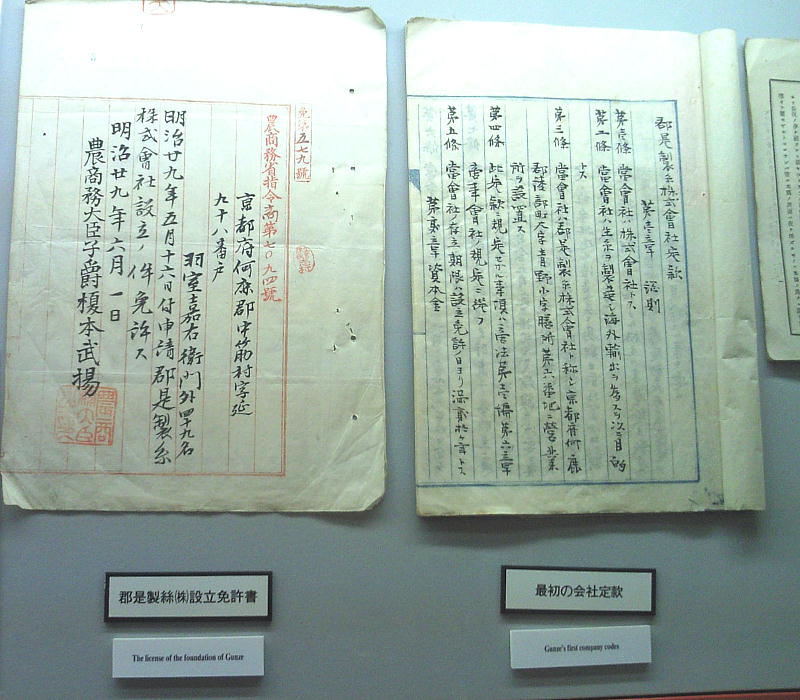 免第五七九號
農商務省指令商第七〇九四號
京都府何鹿郡中筋村字延
九十八番戸
羽室嘉右衛門外四十九名
明治廿九年五月十六日付申請郡是製糸
株式會社設立ノ件免許ス
明治廿九年六月一日
農商務大臣子爵榎本武揚
郡是製糸株式會社定款
第壱章 總則
第壱條 當會社ハ株式會社トス
第二條 當會社ハ生糸ヲ製造シ海外輸出ヲ為スヲ以テ目的
トス
第三條 當會社ハ郡是製糸株式會社ト称シ京都府何鹿
郡綾部町大字青野小字膳所第六番地ニ營業
所ヲ設置ス
第四條 此定款ニ規定セサル事項ハ商法第壱編第六章
商事會社ノ規定ニ從フ
第五條 當會社ノ存立期限ハ設立免許ノ日ヨリ満貳拾ケ年トス
第貳章 資本金
郡是製絲㈱設立免許書
The license of the foundation of Gunze
最初の会社定款
Gunze's first company codes